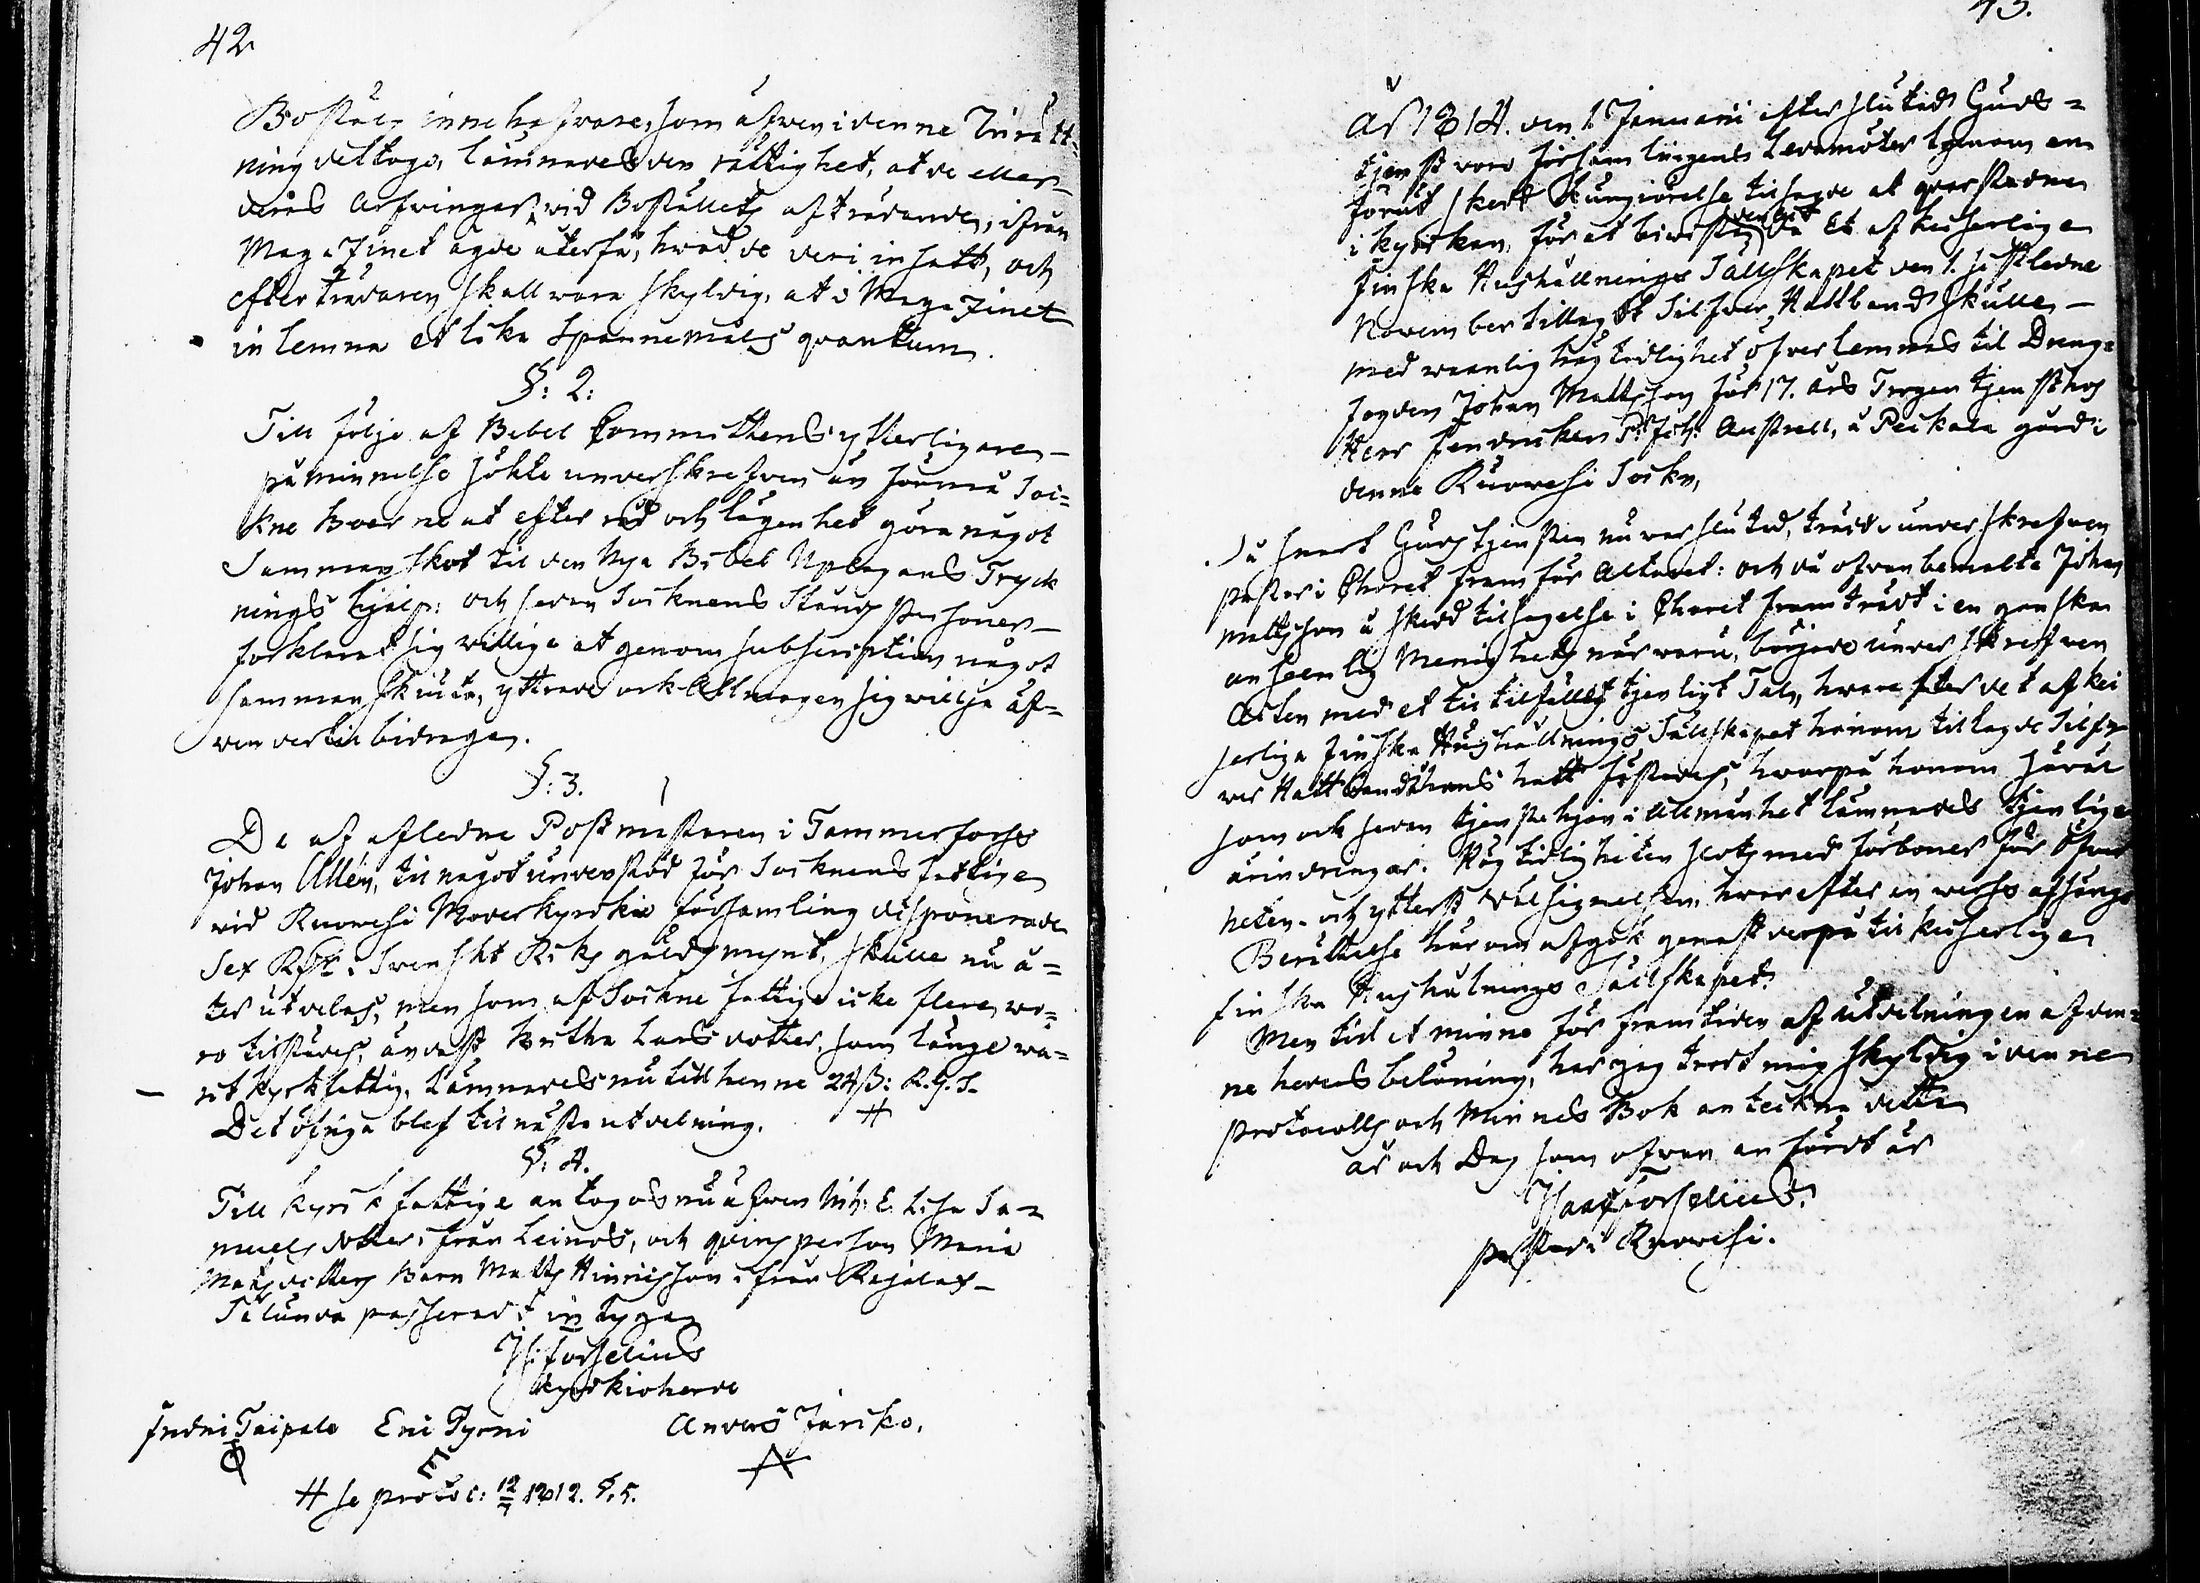 42
Boställs innehafvare, som äfven i denne Inrätt=
ning deltoge, lämnades den rättighet, at de eller
deras Arfvingar, vid Boställets afträdande, ifrån
Magazinet ägde återfå, hvad de deri insatt, och
efterträdaren skall vara skyldig, at i Magazinet
inlemna et lika Spannemåls quantum.
§: 2:
Till följe af Bibel Committens ytterligare
påminnelse sökte underskrefven än förmå Soc=
kne boerne at efter råd och lägenhet göra något
Sammanskot til den Nya Bibel Uplagans Tryck
nings hjelp: och sedan Socknens Stånds personer
förklarat sig willige at genom subscription något
sammanskiuta, yttrade ock Allmogen sig willja äf=
ven dertil bidraga.
§: 3.
De af afledne Postmästaren i Tammerfors
Johan Allén, til något understöd för Socknens fattige
vid Ruovesi Moderkyrkio församling disponerade
Sex Rdr. Svenskt Riksgäldsmynt, skulle nu å=
ter utdelas, men som af Sockne fattige icke flere wo=
ro tilstädes, än dast Britha Larsdotter, som länge wa=
rit kyrkfattig, Lämnades nu till henne 24 ß: R.G.S.
Det öfriga blef til nästa utdelning. #
§: 4.
Till kyrkfattige antogos nu äfven Enk: E. Lisa Sa=
muelsdotter ifrån Leinos, och qvinsperson Maria
Matsdotters Barn Matts Hinricsson ifrån Rajalax
Sålunda passeradt intygar
Is: Forselius
Kyrkioherde
Indri Taipale Eric Pyrni Anders Jäsko.
# se protoc: 12/7 1812. §. 5.
43.
År 1814. den 1 Januarii efter slutad Guds=
tjenst voro församlingens Ledamöter genom en
förut skedt Kungiörelse tilsagde at qvarstadna
i kyrkan, för at bivista, då et af Keiserlige
Finska Hushållnings Sällskapet den 1. sistledne
November tillagdt Silfver Hattband skulle
med wanlig högtidlighet öfverlemnas til Dreng=
Johan Mattsson för 17. års Trogen tjenst hos
Herr Fendricken Austrell, å Peckala gård i
denne Ruovesi Sockn,
Så snart Gudstjensten nu var slutad, trädde underskrefven
pastor i Choret fram för Altaret: och då ofvanbemälte Johan
Mattsson å skedd tilsägelse i Choret framträdt i en ganska
ansenlig Menighets närvaru, började underskrefven
Acten med et til tilfället tjenligt Tal, hvarefter det af Kei
serliga Finska Hushållnings Sällskapet honom tillagde Silf
ver Hattband å hans hatt fästades, hvarpå honom såväl
som och sedan tjenstehjon i Allmänhet lämnades tjenlige
erindringar. Högtidligheten slöts med förböner för Öfver
heten. och ytterst Välsignelsen. hvarefter en wers afsångs
Berättelse härom afgick genast derpå til Keiserliga
Finska Hushålnings Sällskapet.
Men til et minne för framtiden af utdelningen af den=
ne heders belöning, har jag trodt mig skyldig i denne
protocolls och Minnes Bok anteckna detta
år och Dag som ofvan anfördt är
Isaac Forselius.
pastor i Ruovesi.